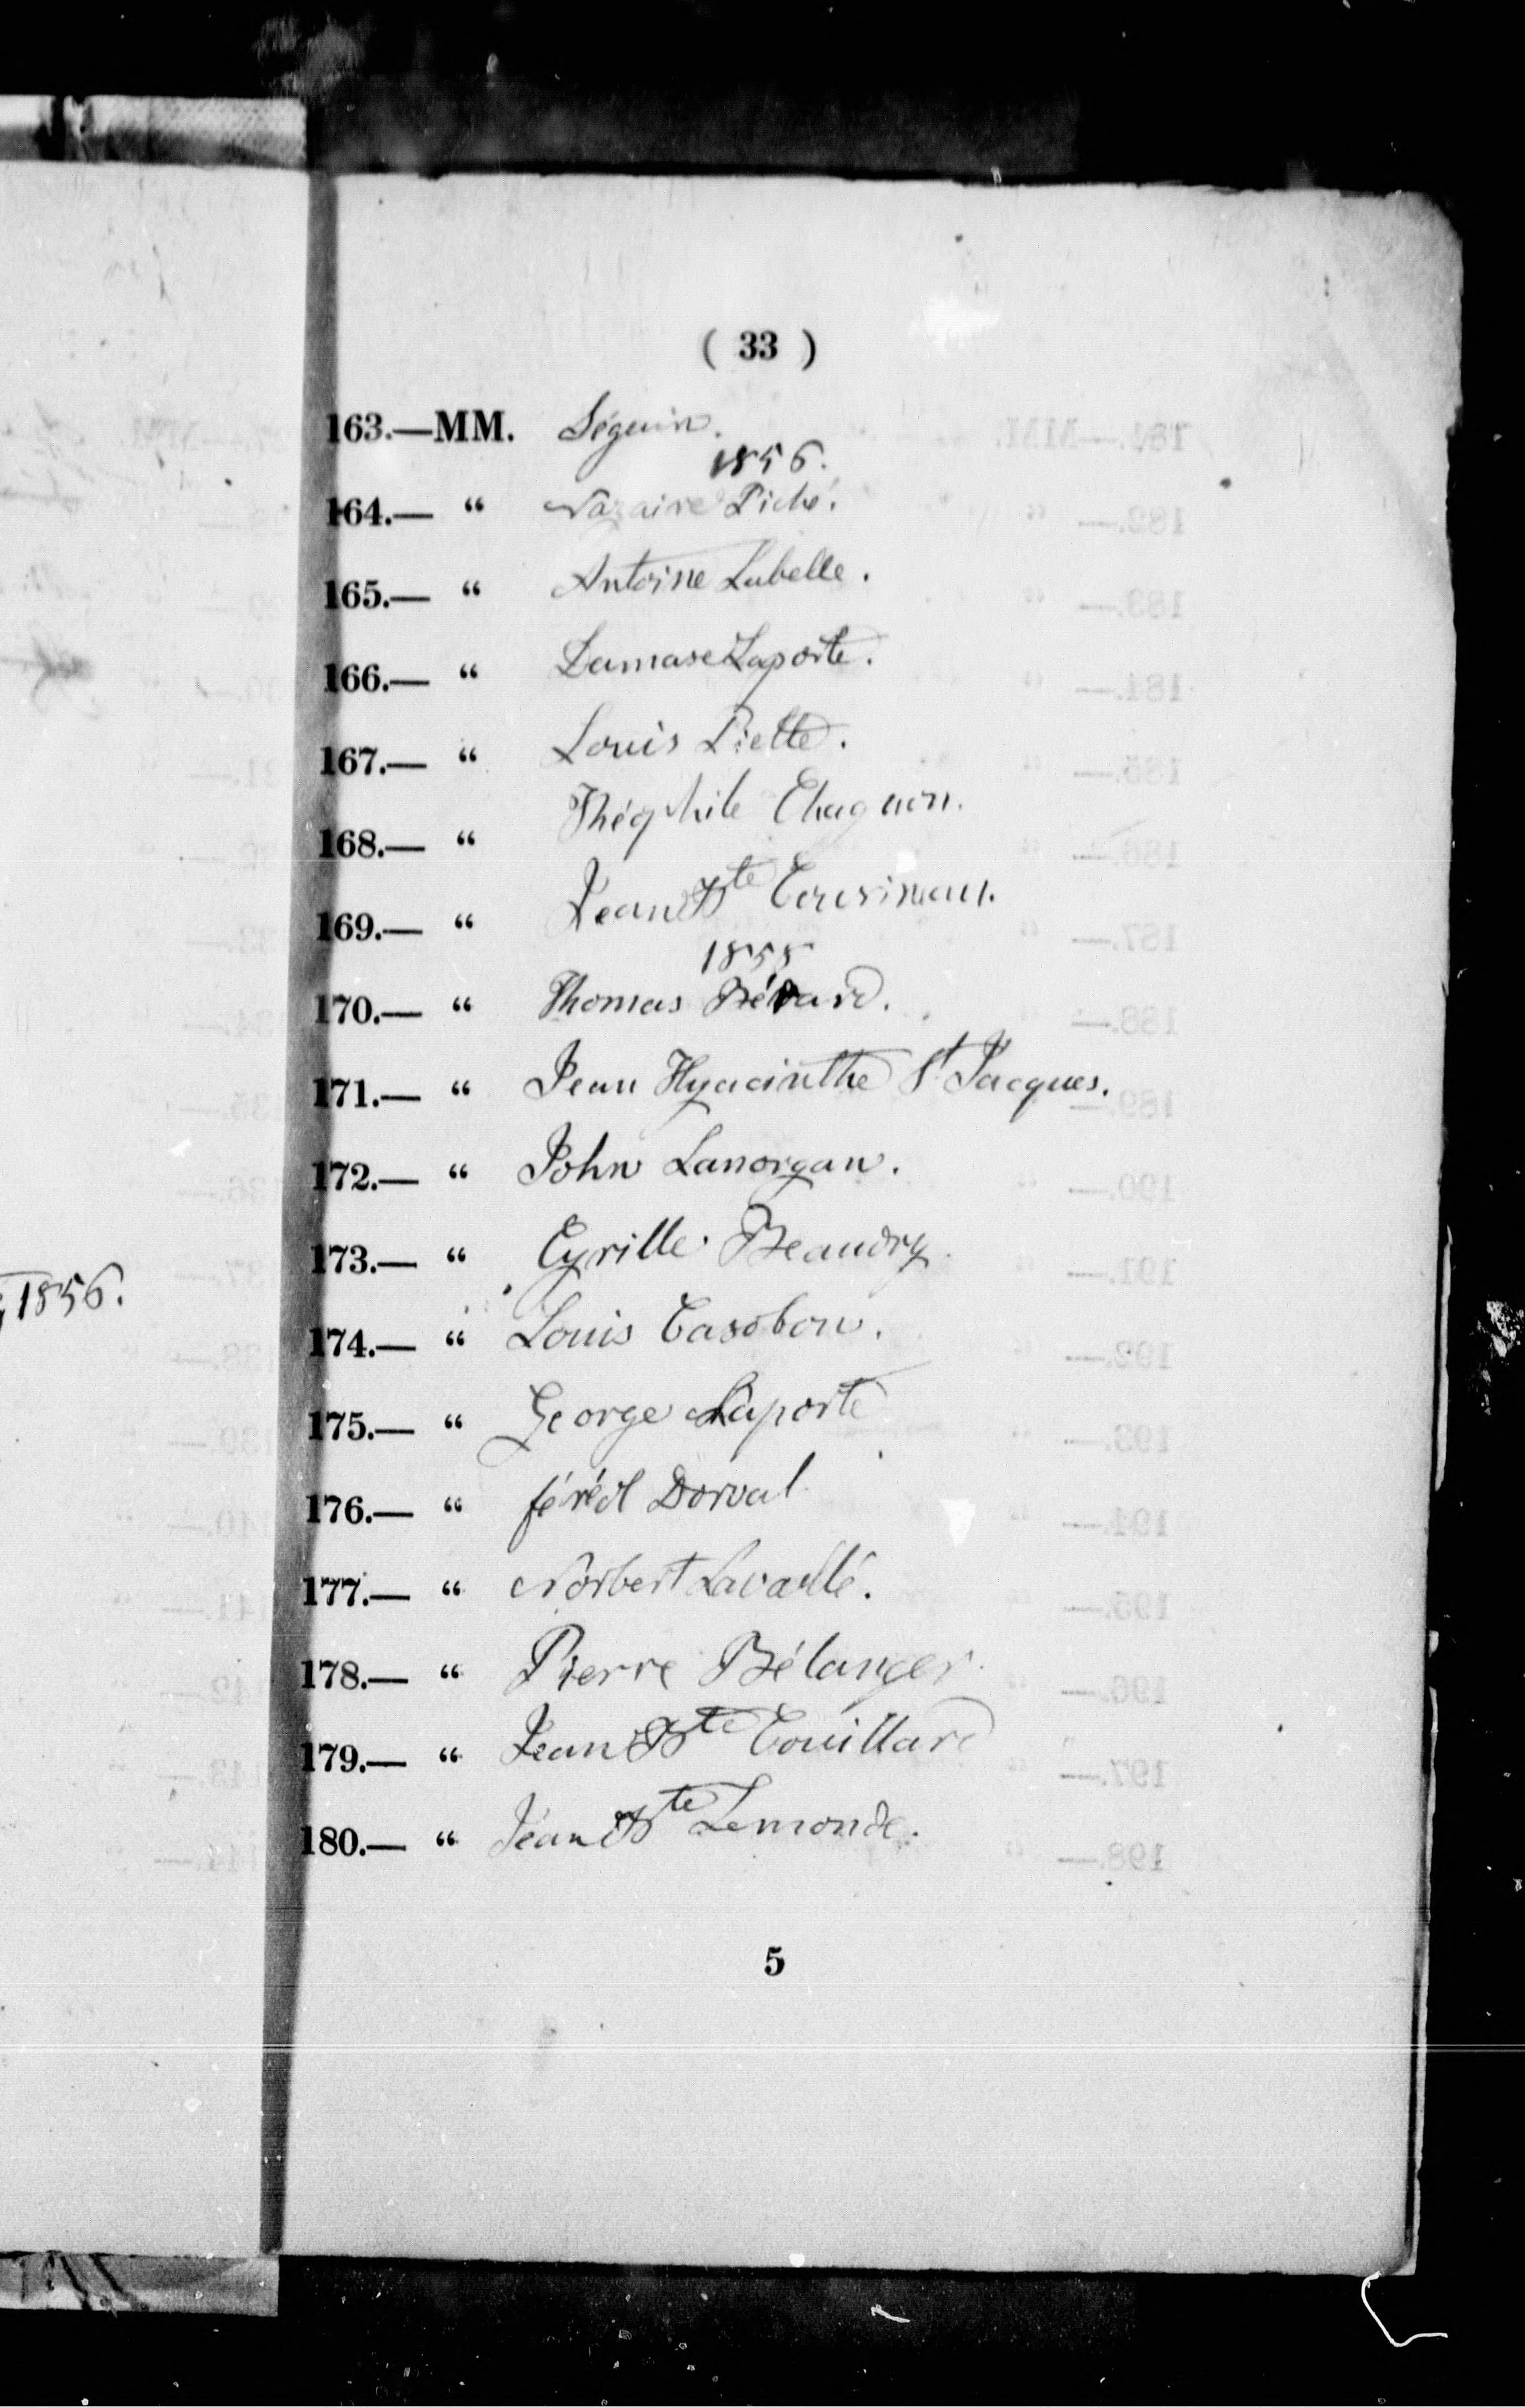 , 1856.
( 33 )
163.—MM. Séguin.
1856.
164.— “ Nazaire Piché.
165.— “ Antoine Labelle.
166.— “ Damase Laporte.
167.— “ Louis Piette.
168.— “ Théophile Chagnon.
169.— “ Jean Bte Cousineau.
1858
170.— “ Thomas
171.— “ Jean Hyacinthe St Jacques.
172.— “ John Lanorgan.
173.— “ Cyrille Beaudry.
174.— “ Louis Casobon.
175.— “ George Laporte
176.— “ Dorval
177.— “ Norbert Lavallé.
178.— “ Pierre Bélanger.
179.— “ Jean Bte Couillard
180.— “ Jean Bte Lemonde.
5